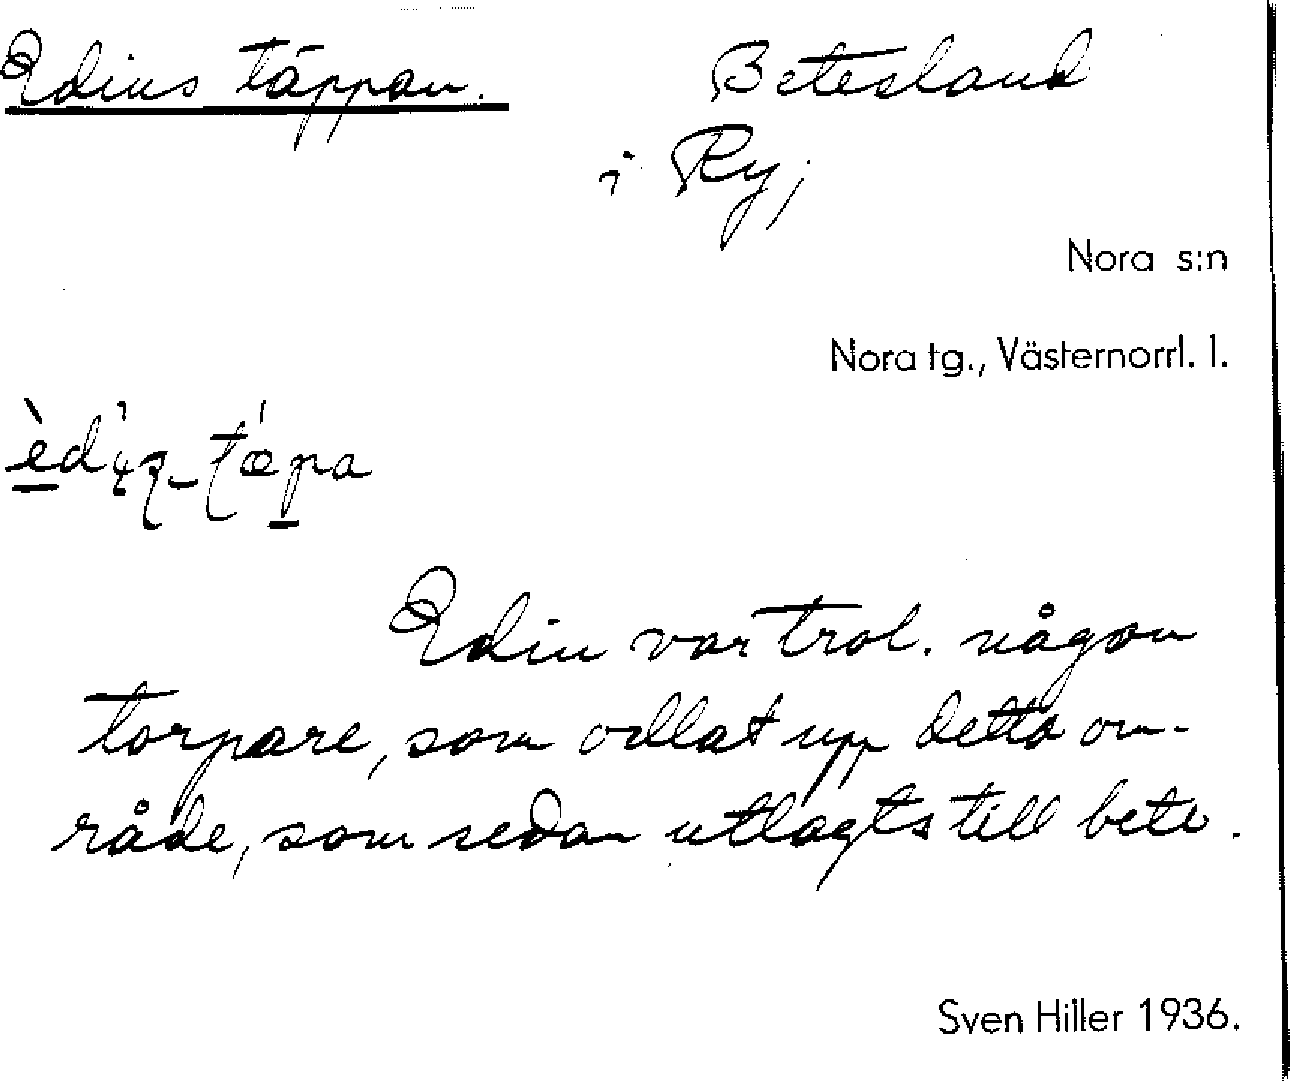 Edins täppan. Betesland
i Ry,
Nora s:n
Nora tg., Västernorrl. l.
Edin var trol. någon
torpare, som odlat upp detta om-
råde, som sedan utlagts till bete.
Sven Hiller 1936.